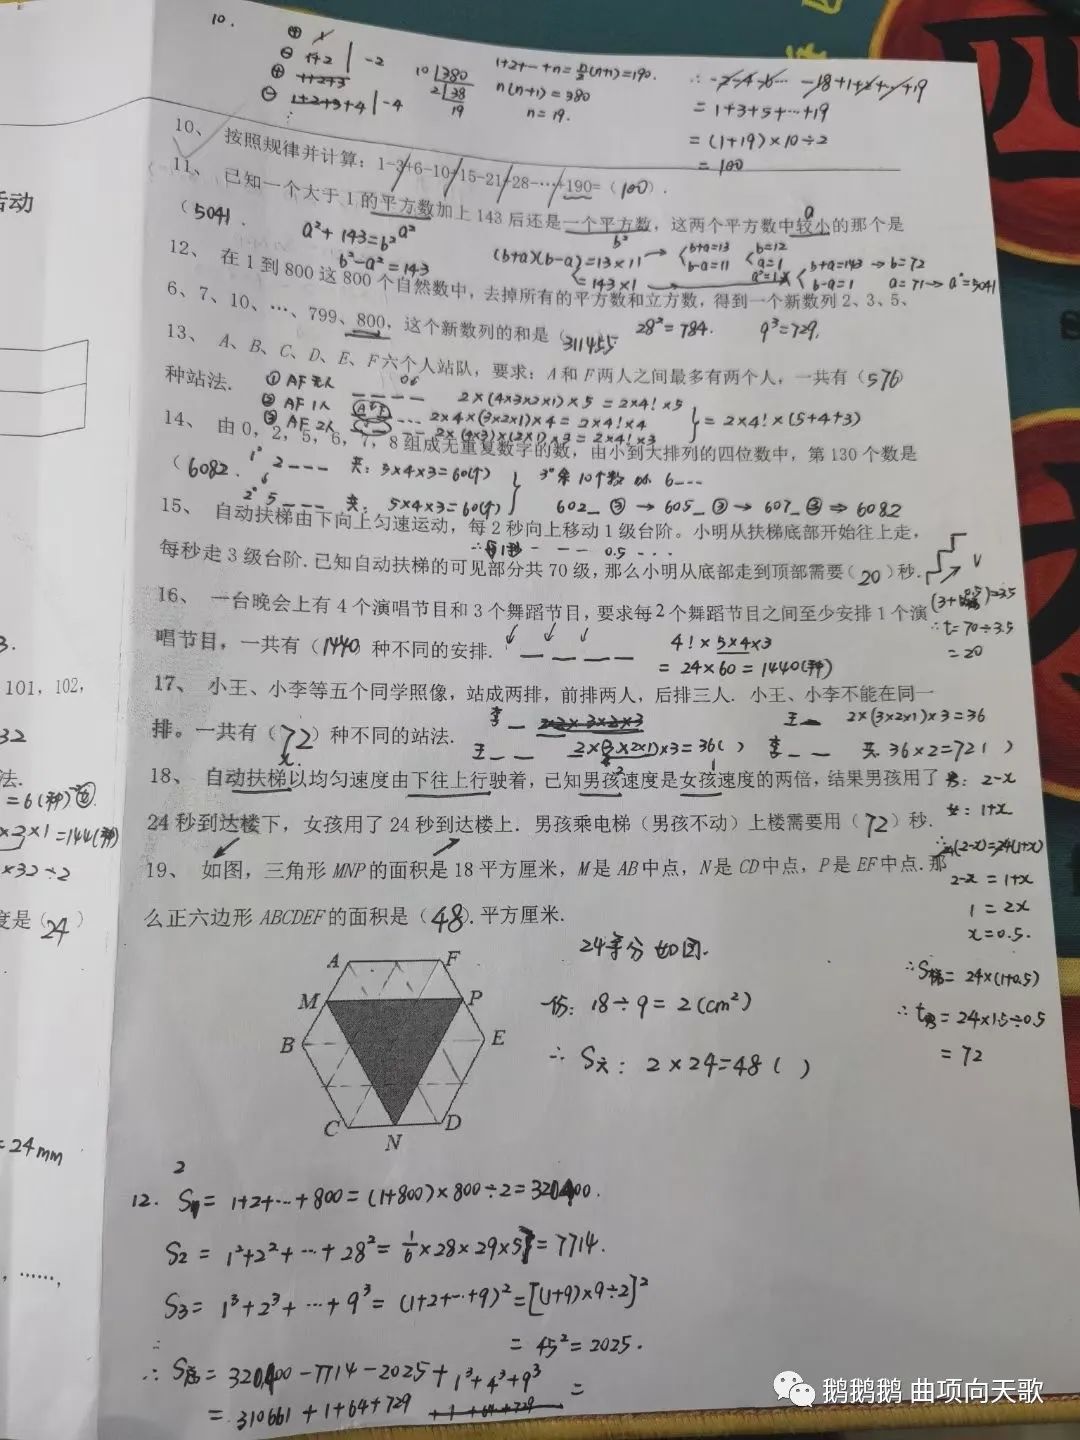 10.
⊕ 1
⊖ 1+2 | -2
⊕ 1+2+3
⊖ 1+2+3+4 | -4
10 380
2 38
19
1+2+…+n=n/2(n+1)=190.
n(n+1)=380
n=19.
∴ -2-4-6-… -18+1+2+…+19
=1+3+5+…+19
=(1+19)×10÷2
=100
10、 按照规律并计算：1-3+6-10+15-21+28-…+190=(100).
11、 已知一个大于 1 的平方数加上 143 后还是一个平方数，这两个平方数中较小的那个是
（5041.
a²
b²
a
a²+143=b²
b²-a²=143
(b+a)(b-a)=13×11
=143×1
b+a=13
b-a=11
b=12
a=1
a²=1 ×
b+a=143 → b=72
b-a=1 a=71 → a²=5041
12、 在 1 到 800 这 800 个自然数中，去掉所有的平方数和立方数，得到一个新数列 2、3、5、
6、7、10、…、799、800，这个新数列的和是（311455
28²=784. 9³=729.
13、 A、B、C、D、E、F 六个人站队，要求：A 和 F 两人之间最多有两个人，一共有（576）
种站法.
① AF 无人 2×(4×3×2×1)×5=2×4!×5
② AF 1人 2×4×(3×2×1)×4=2×4!×4
③ AF 2人 2×(4×3)×(2×1)×3=2×4!×3
=2×4!×(5+4+3)
14、 由 0，2，5，6，7，8 组成无重复数字的数，由小到大排列的四位数中，第 130 个数是
（6082.
1° 2 _ _ _ 共：5×4×3=60(个)
2° 5 _ _ _ 共：5×4×3=60(个)
3° 余10个数 从 6 _ _ _
602_ ③ → 605_ ③ → 607_ ③ ⇒ 6082
15、 自动扶梯由下向上匀速运动，每 2 秒向上移动 1 级台阶。小明从扶梯底部开始往上走，
∴每1秒 - - - 0.5 . . .
每秒走 3 级台阶.已知自动扶梯的可见部分共 70 级，那么小明从底部走到顶部需要（20）秒.
v
=3.5
∴t=70÷3.5
=20
16、 一台晚会上有 4 个演唱节目和 3 个舞蹈节目，要求每 2 个舞蹈节目之间至少安排 1 个演
唱节目，一共有（1440）种不同的安排.
4!×5×4×3
=24×60=1440(种)
17、 小王、小李等五个同学照像，站成两排，前排两人，后排三人. 小王、小李不能在同一
排。一共有（72）种不同的站法.
李 _
王 _ _ 2×(3×2×1)×3=36( )
王 _ 2×(3×2×1)×3=36
李 _ _ 共.36×2=72( )
18、 自动扶梯以均匀速度由下往上行驶着，已知男孩速度是女孩速度的两倍，结果男孩用了
x
2
1
24 秒到达楼下，女孩用了 24 秒到达楼上. 男孩乘电梯（男孩不动）上楼需要用（72）秒.
男：2-x
女：1+x
∴24(2-x)=24(1+x)
2-x=1+x
1=2x
x=0.5.
∴S梯=24×(1+0.5)
∴t男=24×1.5÷0.5
=72
19、 如图，三角形 MNP 的面积是 18 平方厘米，M 是 AB 中点，N 是 CD 中点，P 是 EF 中点.那
么正六边形 ABCDEF 的面积是（48）.平方厘米.
A F
M P
B E
C D
N
24等分 如图.
一份：18÷9=2(cm²)
∴ S六：2×24=48( )
12. S1=1+2+…+800=(1+800)×800÷2=320400.
S2=1²+2²+…+28²=1/6×28×29×57=7714.
S3=1³+2³+…+9³=(1+2+…+9)²=[(1+9)×9÷2]²
=45²=2025.
∴ =320400-7714-2025+1³+4³+9³ =
=310661+1+64+729 +1+64+729
活动
3.
101，102，
32
法.
=6(种)
×2×1=144(种)
×32÷2
度是（24）
=24mm
，……，
鹅鹅鹅 曲项向天歌